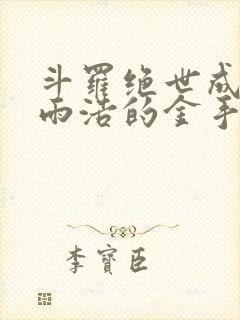 斗羅绝世成
雨浩的金手
李寶臣